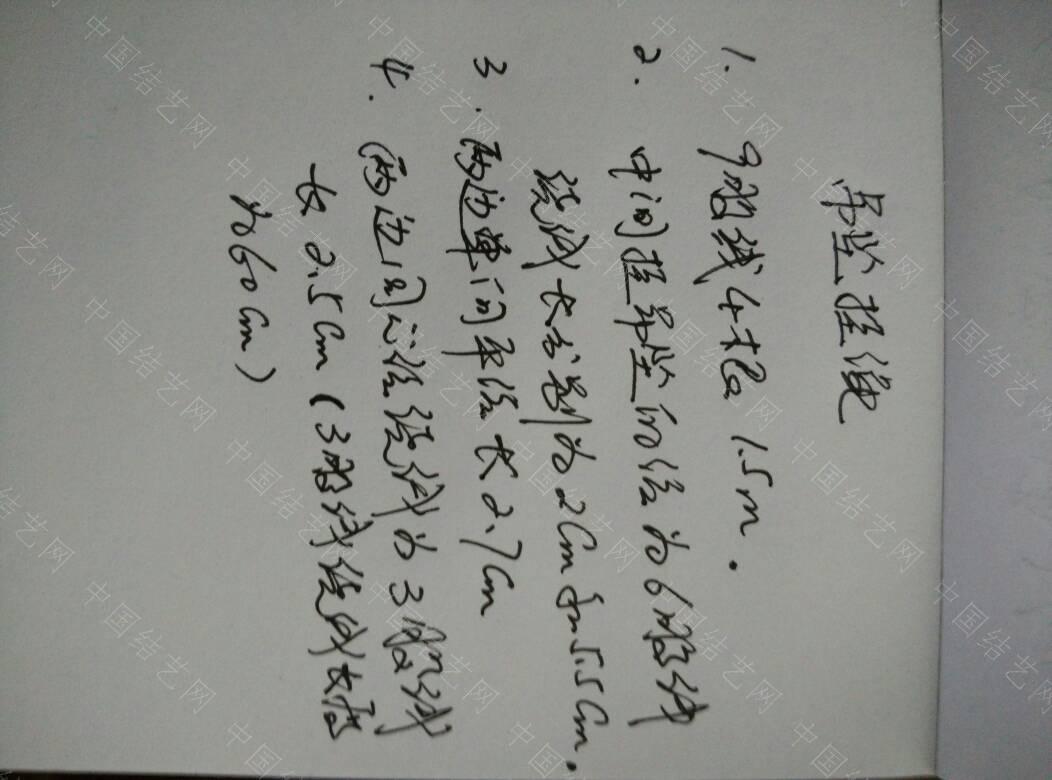 吊坠挂绳
1. 9股线4根 1.5m.
2. 中间挂吊坠的结为6股线
绕线长分别为2cm和5.5cm.
3. 两边单向平结长2.7cm
4. 两边同心结绕线为3股线
长2.5cm(3股线绕线长度
为60cm)
中国结艺网